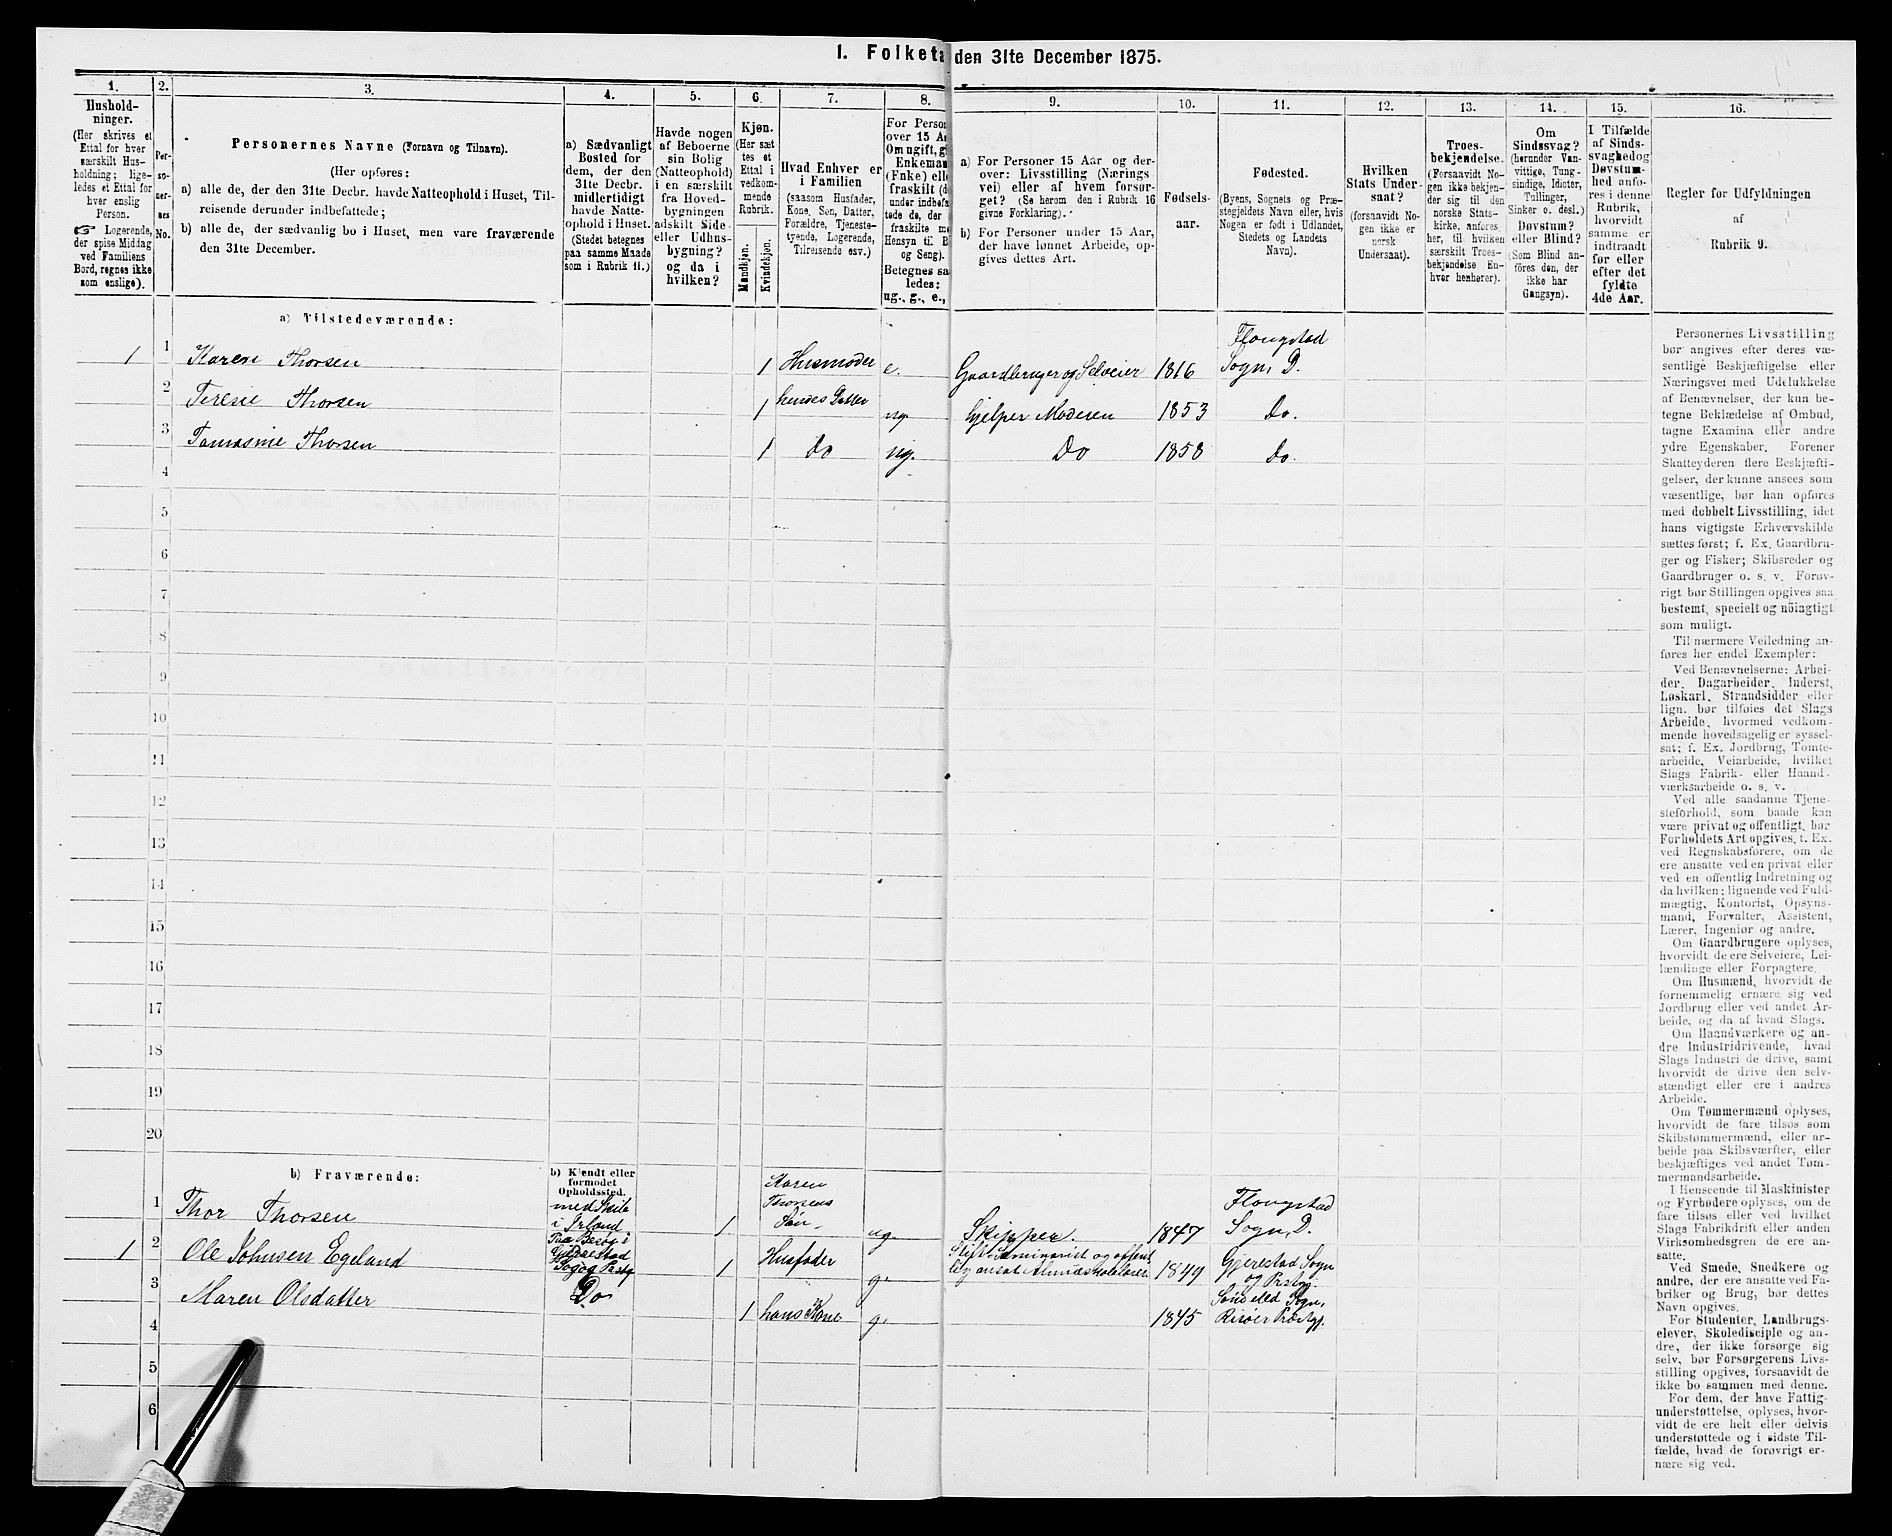 I. Folketæ den 31te December 1875.
1. 2. 3. 4. 5. 6. 7. 8. 9. 10. 11. 12. 13. 14. 15. 16.
Hushold-
ninger.
(Her skrives et
Ettal for hver
særskilt Hus-
holdning; lige-
ledes et Ettal for
hver enslig
Person.
☞ Logerende,
der spise Middag
ved Familiens
Bord, regnes ikke
som enslige).
Per-
so-
ner-
nes
No.
Personernes Navne (Fornavn og Tilnavn).
(Her opføres:
a) alle de, der den 31te Decbr. havde Natteophold i Huset, Til-
reisende derunder indbefattede;
b) alle de, der sædvanlig bo i Huset, men vare fraværende
den 31te December.
a) Sædvanligt
Bosted for
dem, der den
31te Decbr.
midlertidigt
havde Natte-
ophold i Huset.
(Stedet betegnes
paa samme Maade
som i Rubrik 11.)
Havde nogen
af Beboerne
sin Bolig
(Natteophold)
i en særskilt
fra Hoved-
bygningen
adskilt Side-
eller Udhus-
bygning?
og da i
hvilken?
Kjøn.
(Her sæt-
tes et
Ettal i
vedkom-
mende
Rubrik.
Mandkjøn.
Kvindekjøn.
Hvad Enhver er
i Familien
(saasom Husfader,
Kone, Søn, Datter,
Forældre, Tjeneste-
tyende, Logerende,
Tilreisende osv.)
For Person
over 15 A
Om ugift, g
Enkeman
(Enke) elle
fraskilt (d
under indbef
tede de, der
fraskilte m
Hensyn til B
og Seng).
Betegnes sa
ledes:
ug., g., e.,
a) For Personer 15 Aar og der-
over: Livsstilling (Nærings
vei) eller af hvem forsør-
get? (Se herom den i Rubrik 16
givne Forklaring).
b) For Personer under 15 Aar,
der have lønnet Arbeide, op-
gives dettes Art.
Fødsels-
aar.
Fødested.
(Byens, Sognets og Præ-
stegjeldets Navn eller, hvis
Nogen er født i Udlandet,
Stedets og Landets
Navn).
Hvilken
Stats Under-
saat?
(forsaavidt No-
gen ikke er
norsk
Undersaat).
Troes-
bekjendelse.
(Forsaavidt No-
gen ikke bekjen-
der sig til den
norske Stats-
kirke, anføres
her, til hvilken
særskilt Troes-
bekjendelse En-
hver henhører).
Om
Sindssvag?
(herunder Van-
vittige, Tung-
sindige, Idioter,
Tullinger,
Sinker o. desl.)
Døvstum?
eller Blind?
(Som Blind an-
føres den, der
ikke har
Gangsyn).
I Tilfælde
af Sinds-
svaghed og
Døvstum-
hed anfø-
res i denne
Rubrik,
hvorvidt
samme er
indtraadt
før eller
efter det
fyldte
4de Aar.
Regler for Udfyldningen
af
Rubrik 9.
a) Tilstedeværende:
1 1 Karen Thorsen 1 Husmoder e. Gaardbruger og Selveier 1816 Flougstad Sogn, D.
2 Teresie Thorsen 1 hendes Datter ug. hjelper Moderen 1853 Do.
3 Tomasine Thorsen 1 Do ug. Do 1858 Do.
4
5
6
7
8
9
10
11
12
13
14
15
16
17
18
19
20
b) Fraværende:
b) Kjendt eller
formodet
Opholdssted.
1 Thor Thorsen med Skib i Irland 1. Karen Thorsens Søn ug. Skipper. 1847 Flougstad Sogn, D.
1 2 Ole Johnsen Egeland Paa Besøg i Gjerrestad Sogn og Præstg 1 Husfader g. Stift. Seminarist og offentlig ansat Almueskolelærer 1849 Gjerestad Sogn og Prstgj.
3 Maren Olsdatter Do 1 hans Kone g. 1845 Søndeled Sogn, Risøer Præstgj.
4
5
6
Personernes Livsstilling
bør angives efter deres væ-
sentlige Beskjæftigelse eller
Næringsvei med Udelukkelse
af Benævnelser, der kun be-
tegne Beklædelse af Ombud,
tagne Examina eller andre
ydre Egenskaber. Forener
Skatteyderen flere Beskjæfti-
gelser, der kunne ansees som
væsentlige, bør han opføres
med dobbelt Livsstilling, idet
hans vigtigste Erhvervskilde
sættes først; f. Ex. Gaardbru-
ger og Fisker; Skibsreder og
Gaardbruger o. s. v. Forøv-
rigt bør Stillingen opgives saa
bestemt, specielt og nöiagtigt
som muligt.
Til nærmere Veiledning an-
føres her endel Exempler:
Ved Benævnelserne: Arbei-
der, Dagarbeider, Inderst,
Løskarl, Strandsidder eller
lign. bør tilføies det Slags
Arbeide, hvormed vedkom-
mende hovedsagelig er syssel-
sat; f. Ex. Jordbrug, Tomte-
arbeide, Veiarbeide, hvilket
Slags Fabrik- eller Haand-
værksarbeide o. s. v.
Ved alle saadanne Tjene-
steforhold, som baade kan
være privat og offentligt, bør
Forholdets Art opgives, t. Ex.
ved Regnskabsførere, om de
ere ansatte ved en privat eller
ved en offentlig Indretning og
da hvilken; lignende ved Fuld-
mægtig, Kontorist, Opsyns-
mand, Forvalter, Assistent,
Lærer, Ingeniør og andre.
Om Gaardbrugere oplyses,
hvorvidt de ere Selveiere, Lei-
lændinge eller Forpagtere.
Om Husmænd, hvorvidt de
fornemmelig ernære sig ved
Jordbrug eller ved andet Ar-
beide, og da af hvad Slags.
Om Haandværkere og an-
dre Industridrivende, hvad
Slags Industri de drive, samt
hvorvidt de drive den selv-
stændigt eller ere i andres
Arbeide.
Om Tømmermænd oplyses,
hvorvidt de fare tilsøs som
Skibstømmermænd, eller ar-
beide paa Skibsværfter, eller
beskjæftiges ved andet Tøm-
mermandsarbeide.
I Henseende til Maskinister
og Fyrbødere oplyses, om de
fare tilsøs eller ved hvilket
Slags Fabrikdrift eller anden
Virksomhedsgren de ere an-
satte.
Ved Smede, Snedkere og
andre, der ere ansatte ved Fa-
briker og Brug, bør dettes
Navn opgives.
For Studenter, Landbrugs-
elever, Skoledisciple og an-
dre, der ikke forsørge sig
selv, bør Forsørgerens Livs-
stilling opgives, forsaavidt de
ikke bo sammen med denne.
For dem, der have Fattig-
understøttelse, oplyses, hvor-
vidt de ere helt eller delvis
understøttede og i sidste Til-
fælde, hvad de forøvrigt er-
nære sig ved.